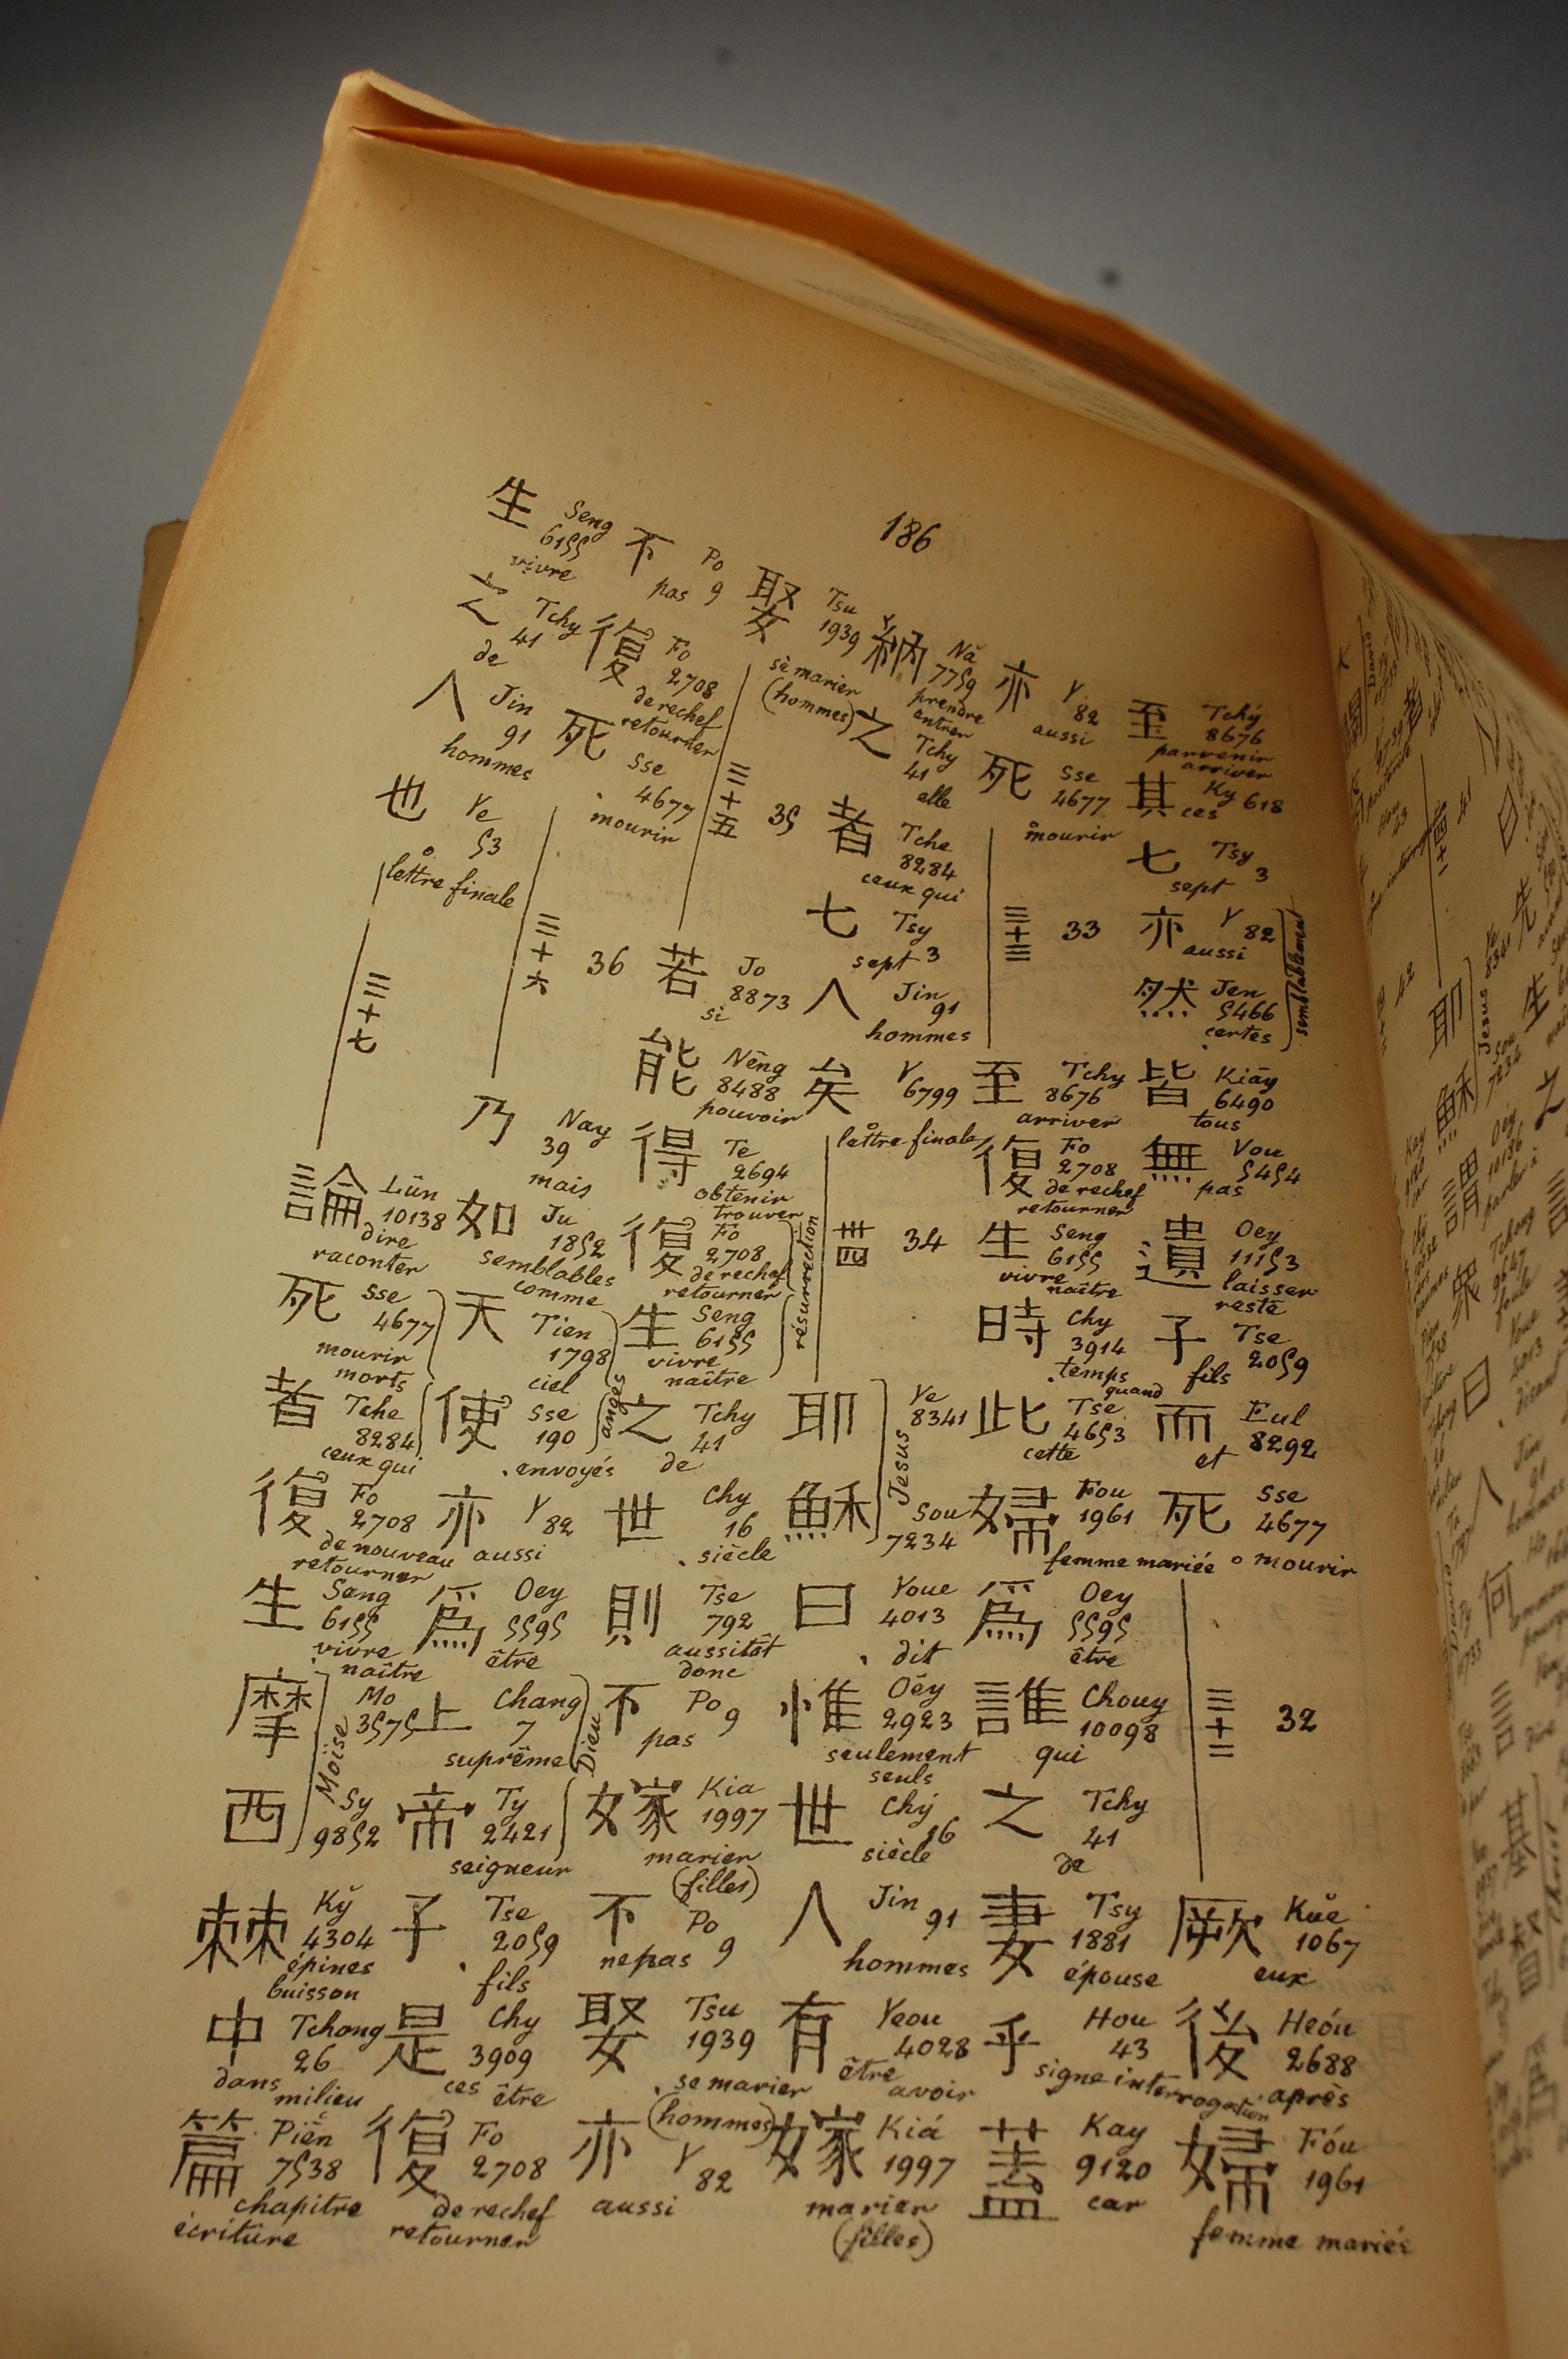 186
至 Tchý 8676 parvenir arriver
其 Ky 618 ces
七 Tsy 3 sept
亦 Y 82 aussi
然 Jen 5466 certes
semblablement
皆 Kiāy 6490 tous
無 Vou 5454 pas
遺 Oey 11153 laisser reste
子 Tse 2059 fils
而 Eul 8292 et
死 Sse 4677 mourir
三十二 32
厥 Kuě 1067 eux
後 Heóu 2688 après
婦 Fóu 1961 femme mariée
亦 Y 82 aussi
死 Sse 4677 mourir
三十三 33
至 Tchy 8676 arriver
復 Fo 2708 derechef retourner
生 Seng 6155 vivre naître
時 Chy 3914 temps quand
此 Tse 4653 cette
婦 Fou 1961 femme mariée
爲 Oey 5595 être
誰 Chouy 10098 qui
之 Tchy 41 de
妻 Tsy 1881 épouse
乎 Hou 43 signe interrogation
蓋 Kay 9120 car
納 Nă 7759 prendre entrer
之 Tchy 41 elle
者 Tche 8284 ceux qui
七 Tsy 3 sept
人 Jin 91 hommes
矣 Y 6799 lettre finale
三十四 34
耶 Ye 8341
穌 Sou 7234
Jesus
曰 Youe 4013 dit
惟 Oêy 2923 seulement seuls
世 Chý 16 siècle
人 Jin 91 hommes
有 Yeou 4028 être avoir
嫁 Kiá 1997 marier (filles)
娶 Tsu 1939 se marier (hommes)
三十五 35
若 Jo 8873 si
能 Nêng 8488 pouvoir
得 Te 2694 obtenir trouver
復 Fo 2708 derechef retourner
生 Seng 6155 vivre naître
résurrection
之 Tchy 41 de
世 Chy 16 siècle
則 Tse 792 aussitôt donc
不 Po 9 pas
嫁 Kia 1997 marier (filles)
不 Po 9 ne pas
娶 Tsu 1939 se marier (hommes)
亦 Y 82 aussi
不 Po 9 pas
復 Fo 2708 derechef retourner
死 Sse 4677 mourir
三十六 36
乃 Nay 39 mais
如 Ju 1852 semblables comme
天 Tien 1798 ciel
使 Sse 190 envoyés
anges
亦 Y 82 aussi
爲 Oey 5595 être
上 Chang 7 suprême
帝 Ty 2421 seigneur
Dieu
子 Tse 2059 fils
是 Chy 3909 ces être
復 Fo 2708 derechef retourner
生 Seng 6155 vivre
之 Tchy 41 de
人 Jin 91 hommes
也 Ye 53 lettre finale
三十七
論 Lûn 10138 dire raconter
死 Sse 4677 mourir morts
者 Tche 8284 ceux qui
復 Fo 2708 de nouveau retourner
生 Seng 6155 vivre naître
摩 Mo 3575
西 Sy 9852
Moïse
棘 Kў 4304 épines buisson
中 Tchong 26 dans milieu
篇 Piěn 7538 chapitre écriture